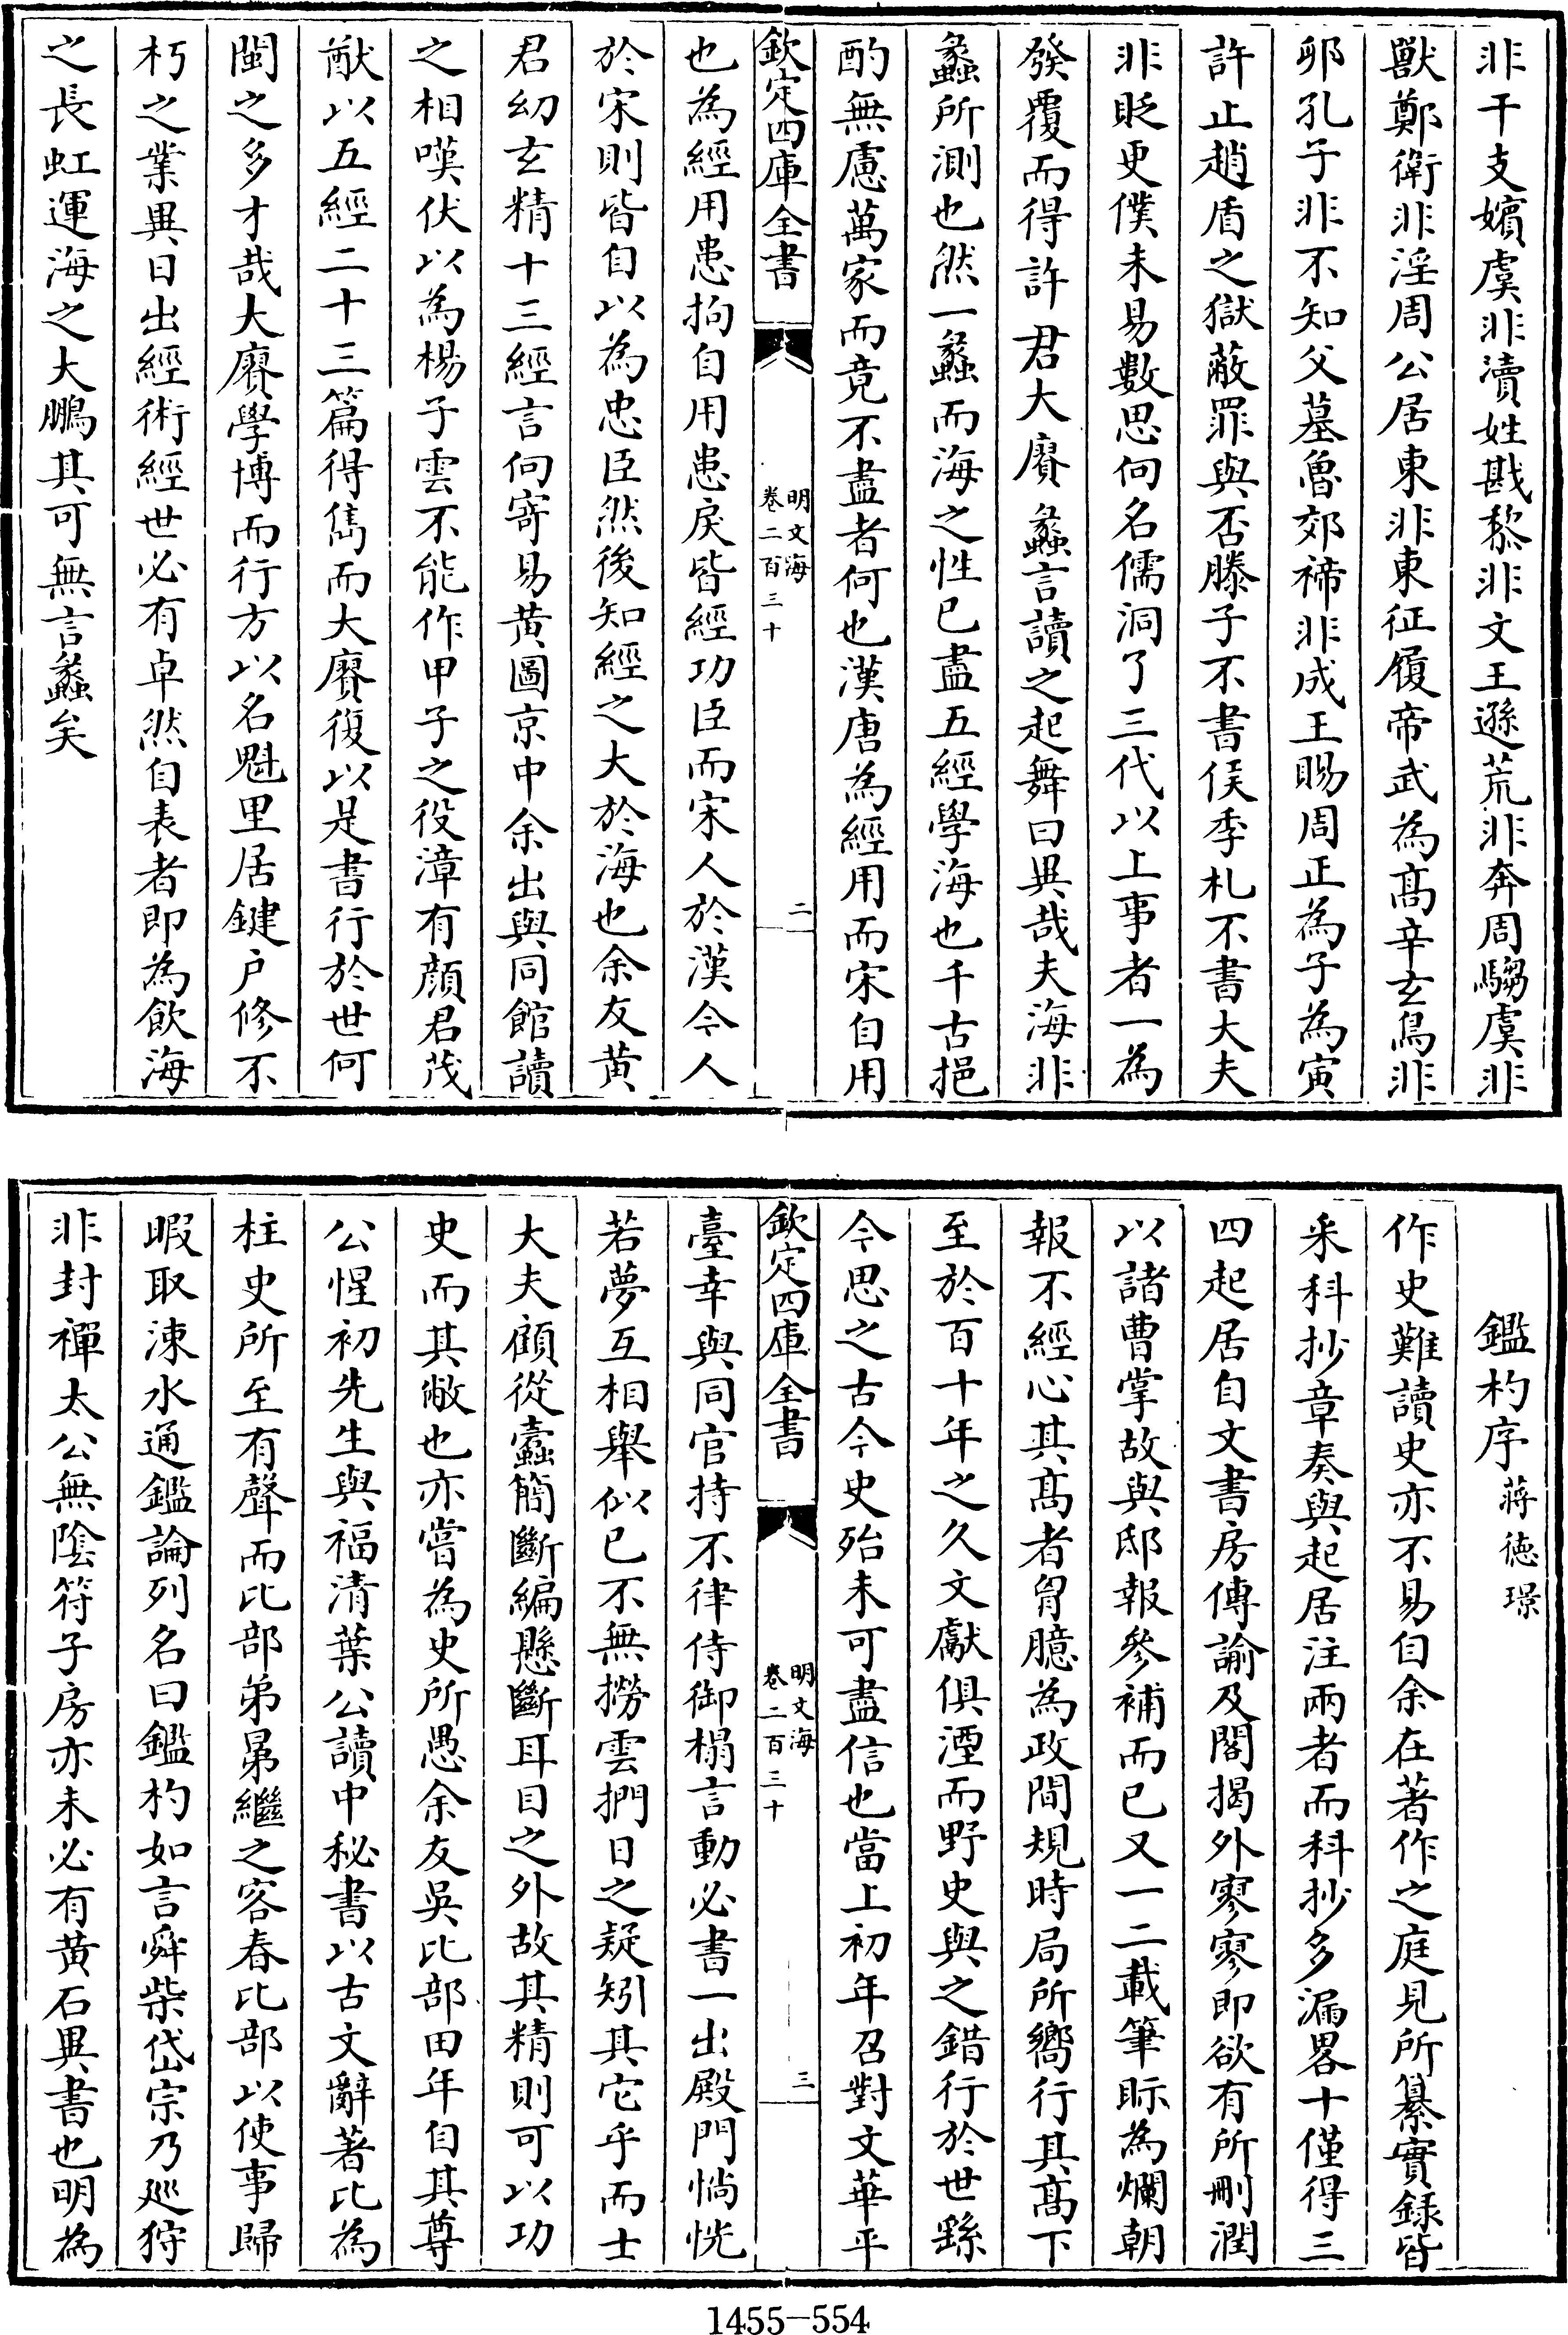 非干支嬪虞非瀆姓戡黎非文王遜荒非奔周騶虞非
獸鄭衛非淫周公居東非東征履帝武為高辛玄鳥非
郊孔子非不知父墓魯郊禘非成王賜周正為子為寅
許止趙盾之獄蔽罪與否滕子不書侯季札不書大夫
非貶更僕未易數思向名儒洞了三代以上事者一為
發覆而得許君大賡蠡言讀之起舞曰異哉夫海非
蠡所測也然一蠡而海之性已盡五經學海也千古挹
酌無慮萬家而竟不盡者何也漢唐為經用而宋自用
欽定四庫全書
明文海
卷二百三十
二
也為經用患拘自用患戾皆經功臣而宋人於漢今人
於宋則皆自以為忠臣然後知經之大於海也余友黃
君幼玄精十三經言向寄易黃圖京中余出與同館讀
之相嘆伏以為楊子雲不能作甲子之役漳有顏君茂
猷以五經二十三篇得雋而大賡復以是書行於世何
閩之多才哉大賡學博而行方以名魁里居鍵户修不
朽之業異日出經術經世必有卓然自表者即為飲海
之長虹運海之大鵬其可無言蠡矣
鑑杓序 蔣德璟
作史難讀史亦不易自余在著作之庭見所纂實録皆
采科抄章奏與起居注兩者而科抄多漏畧十僅得三
四起居自文書房傳諭及閣揭外寥寥即欲有所刪潤
以諸曹掌故與邸報參補而已又一二載筆眎為爛朝
報不經心其高者胷臆為政間規時局所嚮行其高下
至於百十年之久文獻俱湮而野史與之錯行於世繇
今思之古今史殆未可盡信也當上初年召對文華平
欽定四庫全書
明文海
卷二百三十
三
臺幸與同官持不律侍御榻言動必書一出殿門惝恍
若夢互相舉似已不無撈雲捫日之疑矧其它乎而士
大夫顧從蠹簡斷編懸斷耳目之外故其精則可以功
史而其敝也亦嘗為史所愚余友吳比部田年自其尊
公惺初先生與福清葉公讀中秘書以古文辭著比為
柱史所至有聲而比部弟晜繼之客春比部以使事歸
暇取涑水通鑑論列名曰鑑杓如言舜柴岱宗乃巡狩
非封禪太公無陰符子房亦未必有黃石異書也明為
1455-554